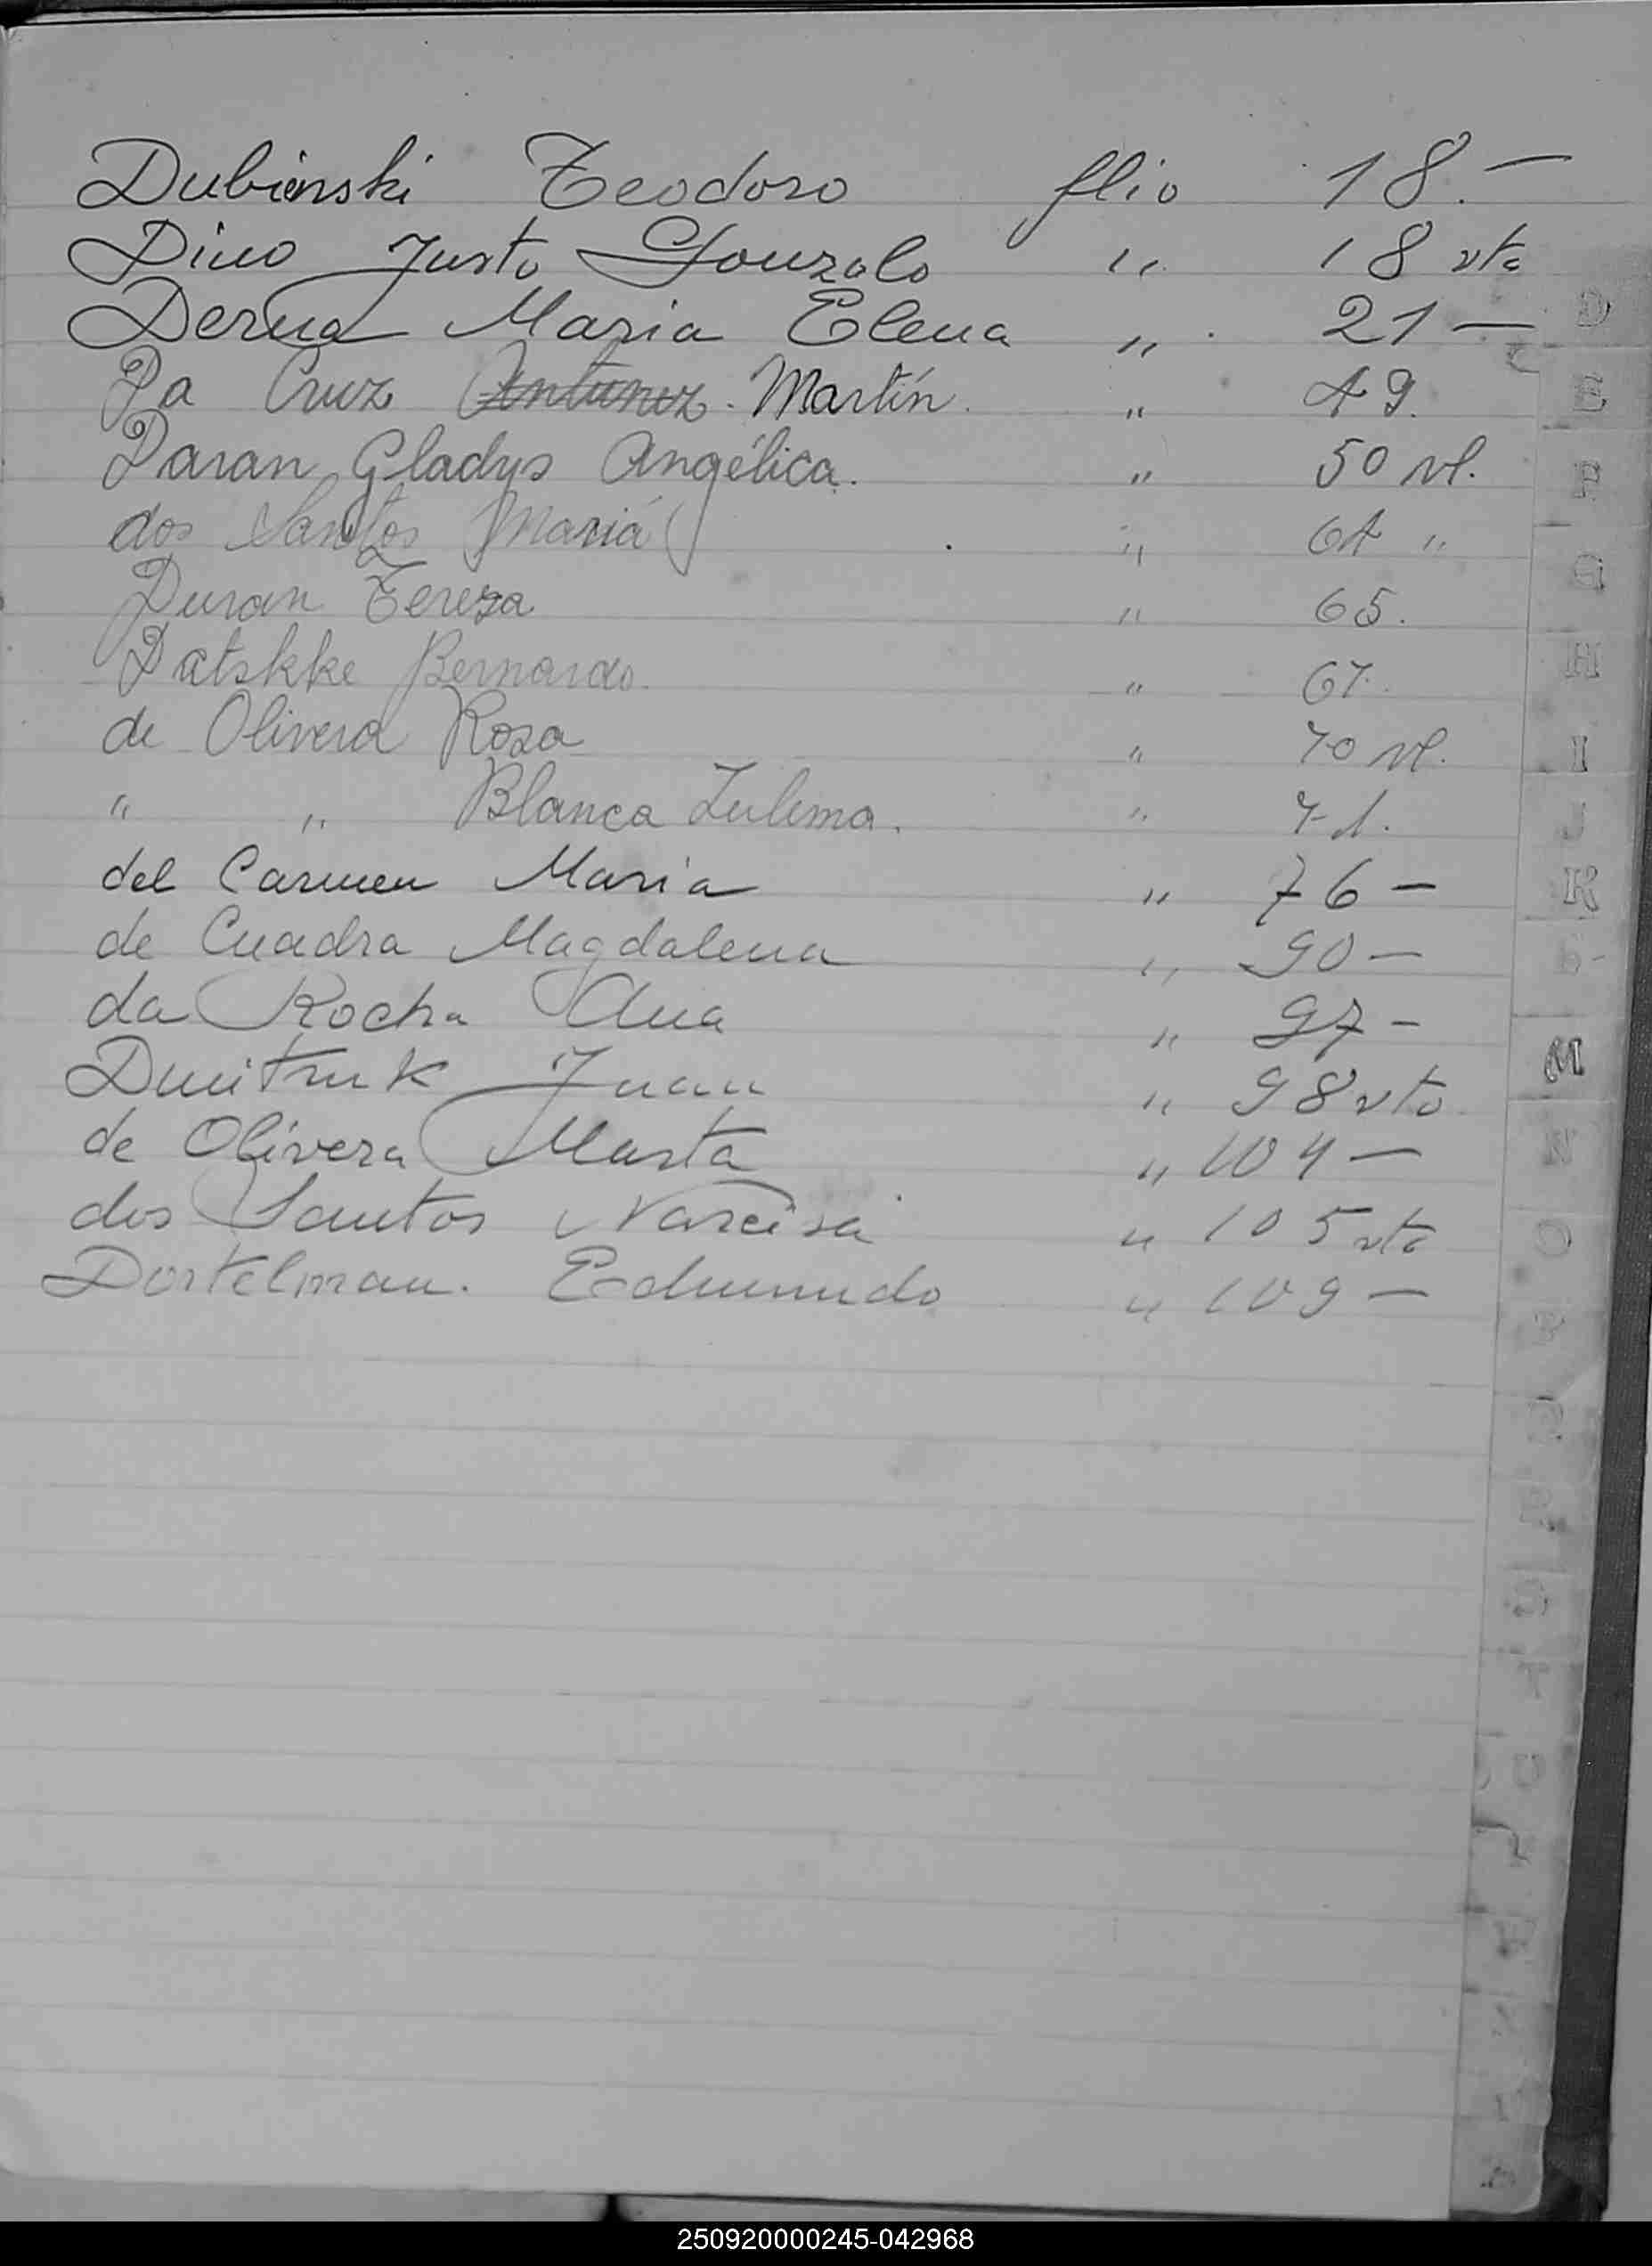 Dubienski Teodoro flio 18.—
Dino Justo Gonzalo " 18 vta
Derna Maria Elena " 21 —
Da Cruz Antunez Martín. " 49.
Daran Gladys Angélica. " 50 vl.
dos Santos María " 64 "
Duran Tereza " 65.
Datskke Bernardo. " 67.
de Olivera Rosa " 70 vl.
" " Blanca Zulema. " 71.
del Carmen Maria " 76 —
de Cuadra Magdalena " 90 —
da Rocha Ana " 97 —
Dmitruk Juan " 98 vta
de Olivera Marta " 104 —
dos Santos Narcisa " 105 vta
Dortelman. Edmundo " 109 —
D
E
F
G
H
I
J
K
M
N
O
S
T
250920000245-042968